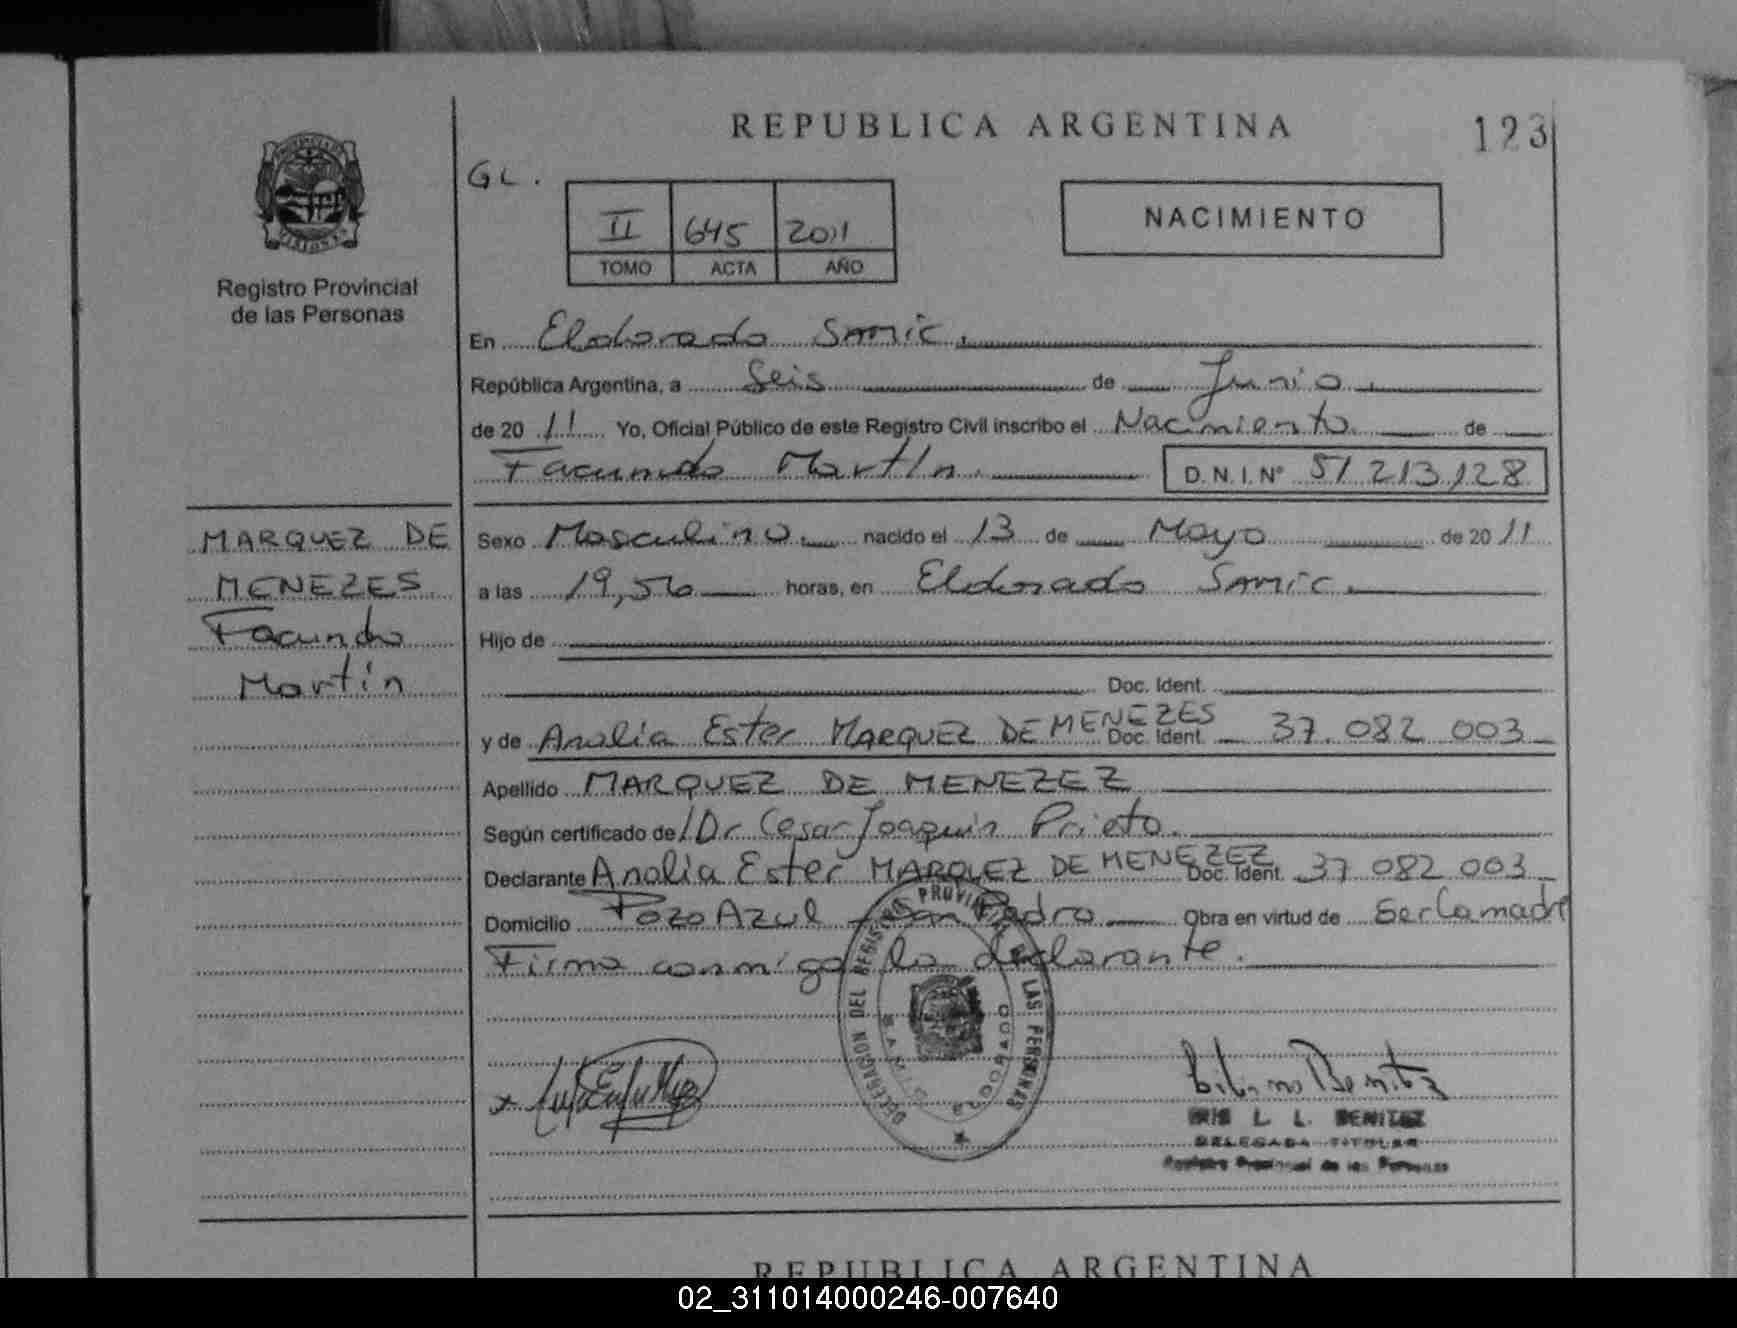 REPUBLICA ARGENTINA
123
GL.
II 645 2011
TOMO ACTA AÑO
NACIMIENTO
Registro Provincial
de las Personas
En Eldorado Samic.
República Argentina, a Seis de Junio.
de 20 11 Yo, Oficial Público de este Registro Civil inscribo el Nacimiento de
Facundo Martín. D.N.I. N° 51.213.128
MARQUEZ DE
MENEZES
Facundo
Martín
Sexo Masculino. nacido el 13 de Mayo de 20 11
a las 19,56 horas, en Eldorado Samic.
Hijo de
Doc. Ident.
y de Analia Ester MARQUEZ DE MENEZES Doc. Ident. 37.082 003
Apellido MARQUEZ DE MENEZEZ
Según certificado de Dr Cesar Joaquin Prieto.
Declarante Analia Ester MARQUEZ DE MENEZEZ Doc. Ident. 37 082 003
Domicilio Pozo Azul - San Pedro. Obra en virtud de Ser la madre
Firma conmigo la declarante.
DELEGACION DEL REGISTRO PROVINCIAL DE LAS PERSONAS
SAMIC ELDORADO
IRIS L. L. BENITEZ
DELEGADA TITULAR
Registro Provincial de las Personas
REPUBLICA ARGENTINA
02_311014000246-007640